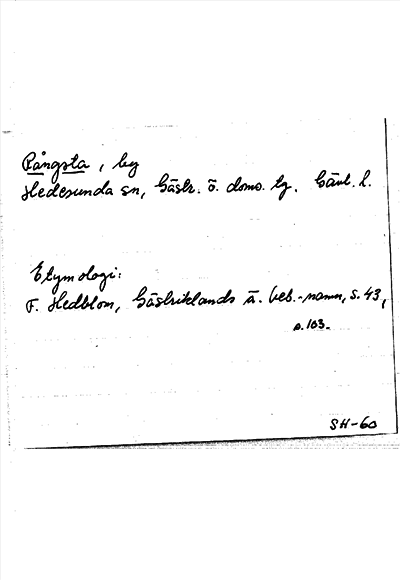 Rångsta, by
Hedesunda sn, Gästr. ö. doms. tg. Gävl. l.
Etymologi:
F. Hedblom, Gästriklands ä. beb.-namn, s. 43,
o. 103.
SH-60